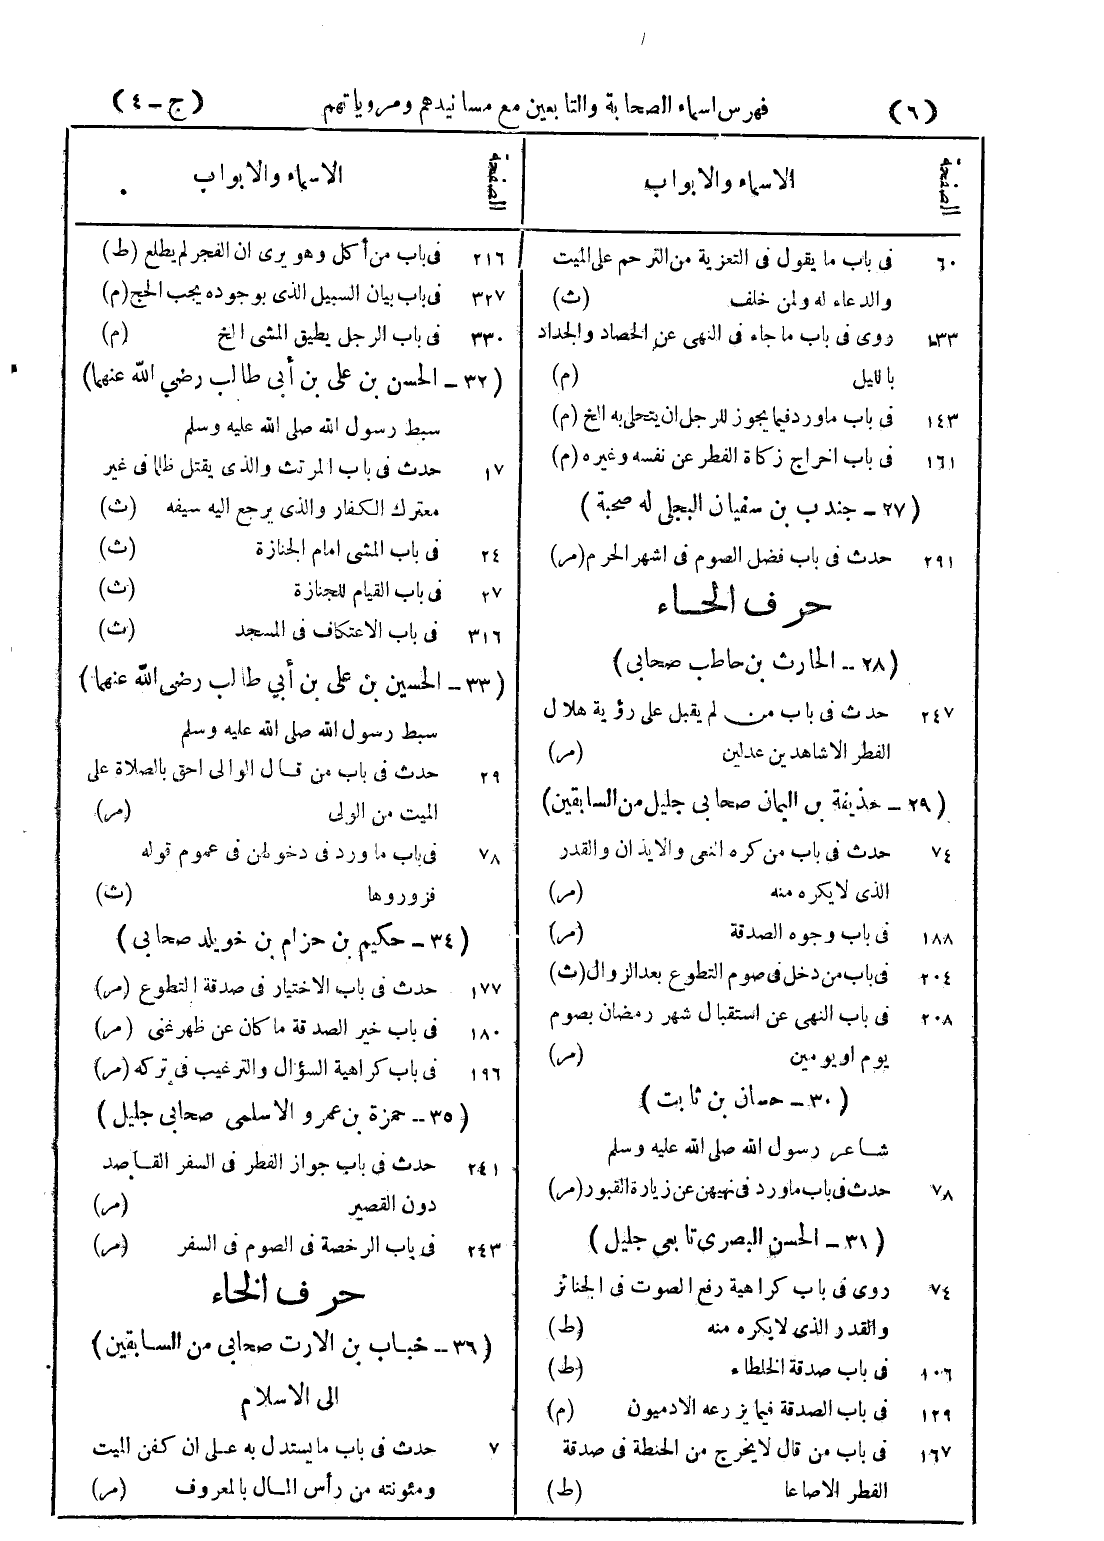 (٦) فهرس اسماء الصحابة والتابعين مع مسانيدهم ومروياتهم (ج-٤)
الصفحة الاسماء والابواب
٦٠ فى باب ما يقول فى التعزية من الترحم على الميت
والدعاء له ولمن خلف (ث)
١٣٣ روى فى باب ما جاء فى النهى عن الحصاد والجداد
بالليل (م)
١٤٣ فى باب ماورد فيما يجوز للرجل ان يتحلى به الخ (م)
١٦١ فى باب اخراج زكاة الفطر عن نفسه وغيره (م)
(٢٧ - جندب بن سفيان البجلى له صحبة)
٢٩١ حدث فى باب فضل الصوم فى اشهر الحرم (مر)
حرف الحاء
(٢٨ - الحارث بن حاطب صحابى)
٢٤٧ حدث فى باب من لم يقبل على رؤية هلال
الفطر الاشاهدين عدلين (مر)
(٢٩ - حذيفة بن اليمان صحابى جليل من السابقين)
٧٤ حدث فى باب من كره النعى والايذان والقدر
الذى لايكره منه (مر)
١٨٨ فى باب وجوه الصدقة (مر)
٢٠٤ فى باب من دخل فى صوم التطوع بعد الزوال (ث)
٢٠٨ فى باب النهى عن استقبال شهر رمضان بصوم
يوم او يومين (مر)
(٣٠ - حسان بن ثابت)
شاعر رسول الله صلى الله عليه وسلم
٧٨ حدث فى باب ماورد فى نهيهن عن زيارة القبور (مر)
(٣١ - الحسن البصرى تابعى جليل)
٧٤ روى فى باب كراهية رفع الصوت فى الجنائز
والقدر الذى لايكره منه (ط)
١٠٦ فى باب صدقة الخلطاء (ط)
١٢٩ فى باب الصدقة فيما يزرعه الادميون (م)
١٦٧ فى باب من قال لايخرج من الحنطة فى صدقة
الفطر الاصاعا (ط)
الصفحة الاسماء والابواب
٢١٦ فى باب من أكل وهو يرى ان الفجر لم يطلع (ط)
٣٢٧ فى باب بيان السبيل الذى بوجوده يجب الحج (م)
٣٣٠ فى باب الرجل يطيق المشى الخ (م)
(٣٢ - الحسن بن على بن أبى طالب رضي الله عنهما)
سبط رسول الله صلى الله عليه وسلم
١٧ حدث فى باب المرتث والذى يقتل ظلما فى غير
معترك الكفار والذى يرجع اليه سيفه (ث)
٢٤ فى باب المشى امام الجنازة (ث)
٢٧ فى باب القيام للجنازة (ث)
٣١٦ فى باب الاعتكاف فى المسجد (ث)
(٣٣ - الحسين بن على بن أبي طالب رضى الله عنهما)
سبط رسول الله صلى الله عليه وسلم
٢٩ حدث فى باب من قال الوالى احق بالصلاة على
الميت من الولى (مر)
٧٨ فى باب ما ورد فى دخولهن فى عموم قوله
فزوروها (ث)
(٣٤ - حكيم بن حزام بن خويلد صحابى)
١٧٧ حدث فى باب الاختيار فى صدقة التطوع (مر)
١٨٠ فى باب خير الصدقة ماكان عن ظهر غنى (مر)
١٩٦ فى باب كراهية السؤال والترغيب فى تركه (مر)
(٣٥ - حمزة بن عمرو الاسلمى صحابى جليل)
٢٤١ حدث فى باب جواز الفطر فى السفر القاصد
دون القصير (مر)
٢٤٣ فى باب الرخصة فى الصوم فى السفر (مر)
حرف الخاء
(٣٦ - خباب بن الارت صحابى من السابقين)
الى الاسلام
٧ حدث فى باب مايستدل به على ان كفن الميت
ومئونته من رأس المال بالمعروف (مر)